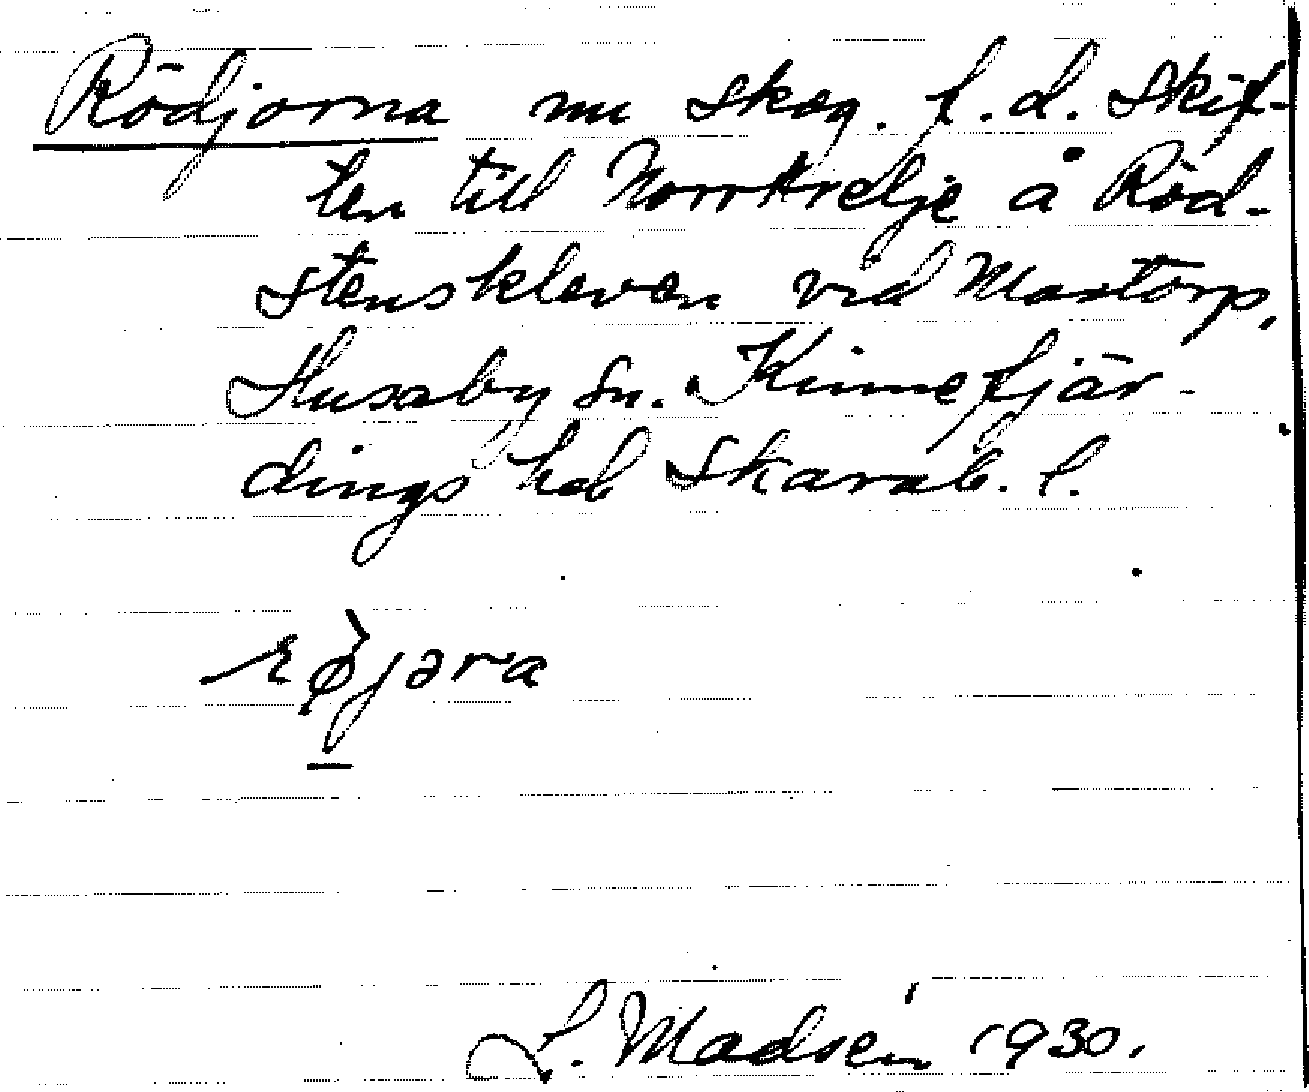 Rödjorna nu skog. f.d. Skif-
ten till Norrtrelje å Röd-
stenskleven vid Mastorp,
Husaby sn. Kinnefjär-
dings hd Skarab. l.
røjəra
L. Madsén 1930.